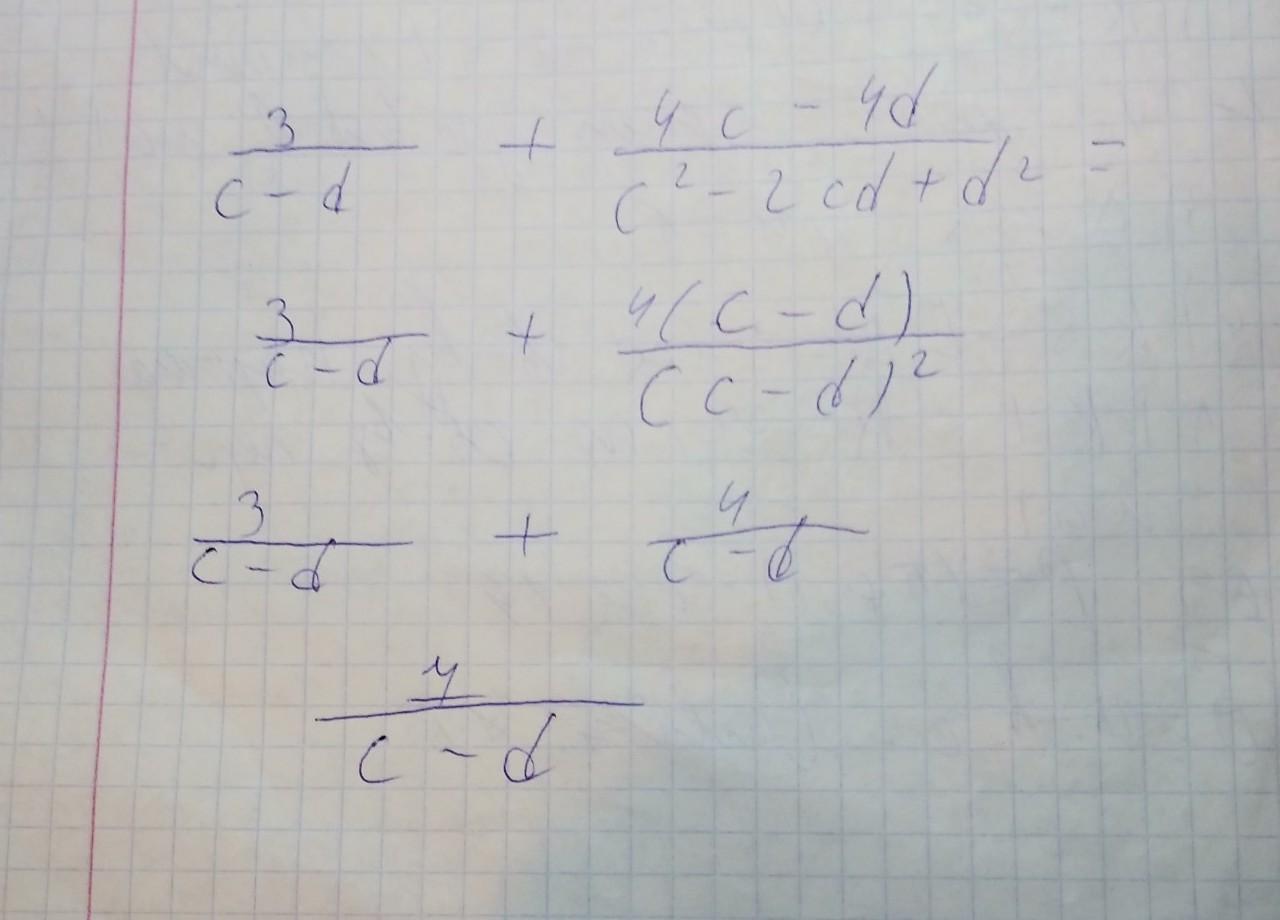 3/(c - d) + (4c - 4d)/(c² - 2cd + d²) =
3/(c - d) + 4(c - d)/(c - d)²
3/(c - d) + 4/(c - d)
7/(c - d)